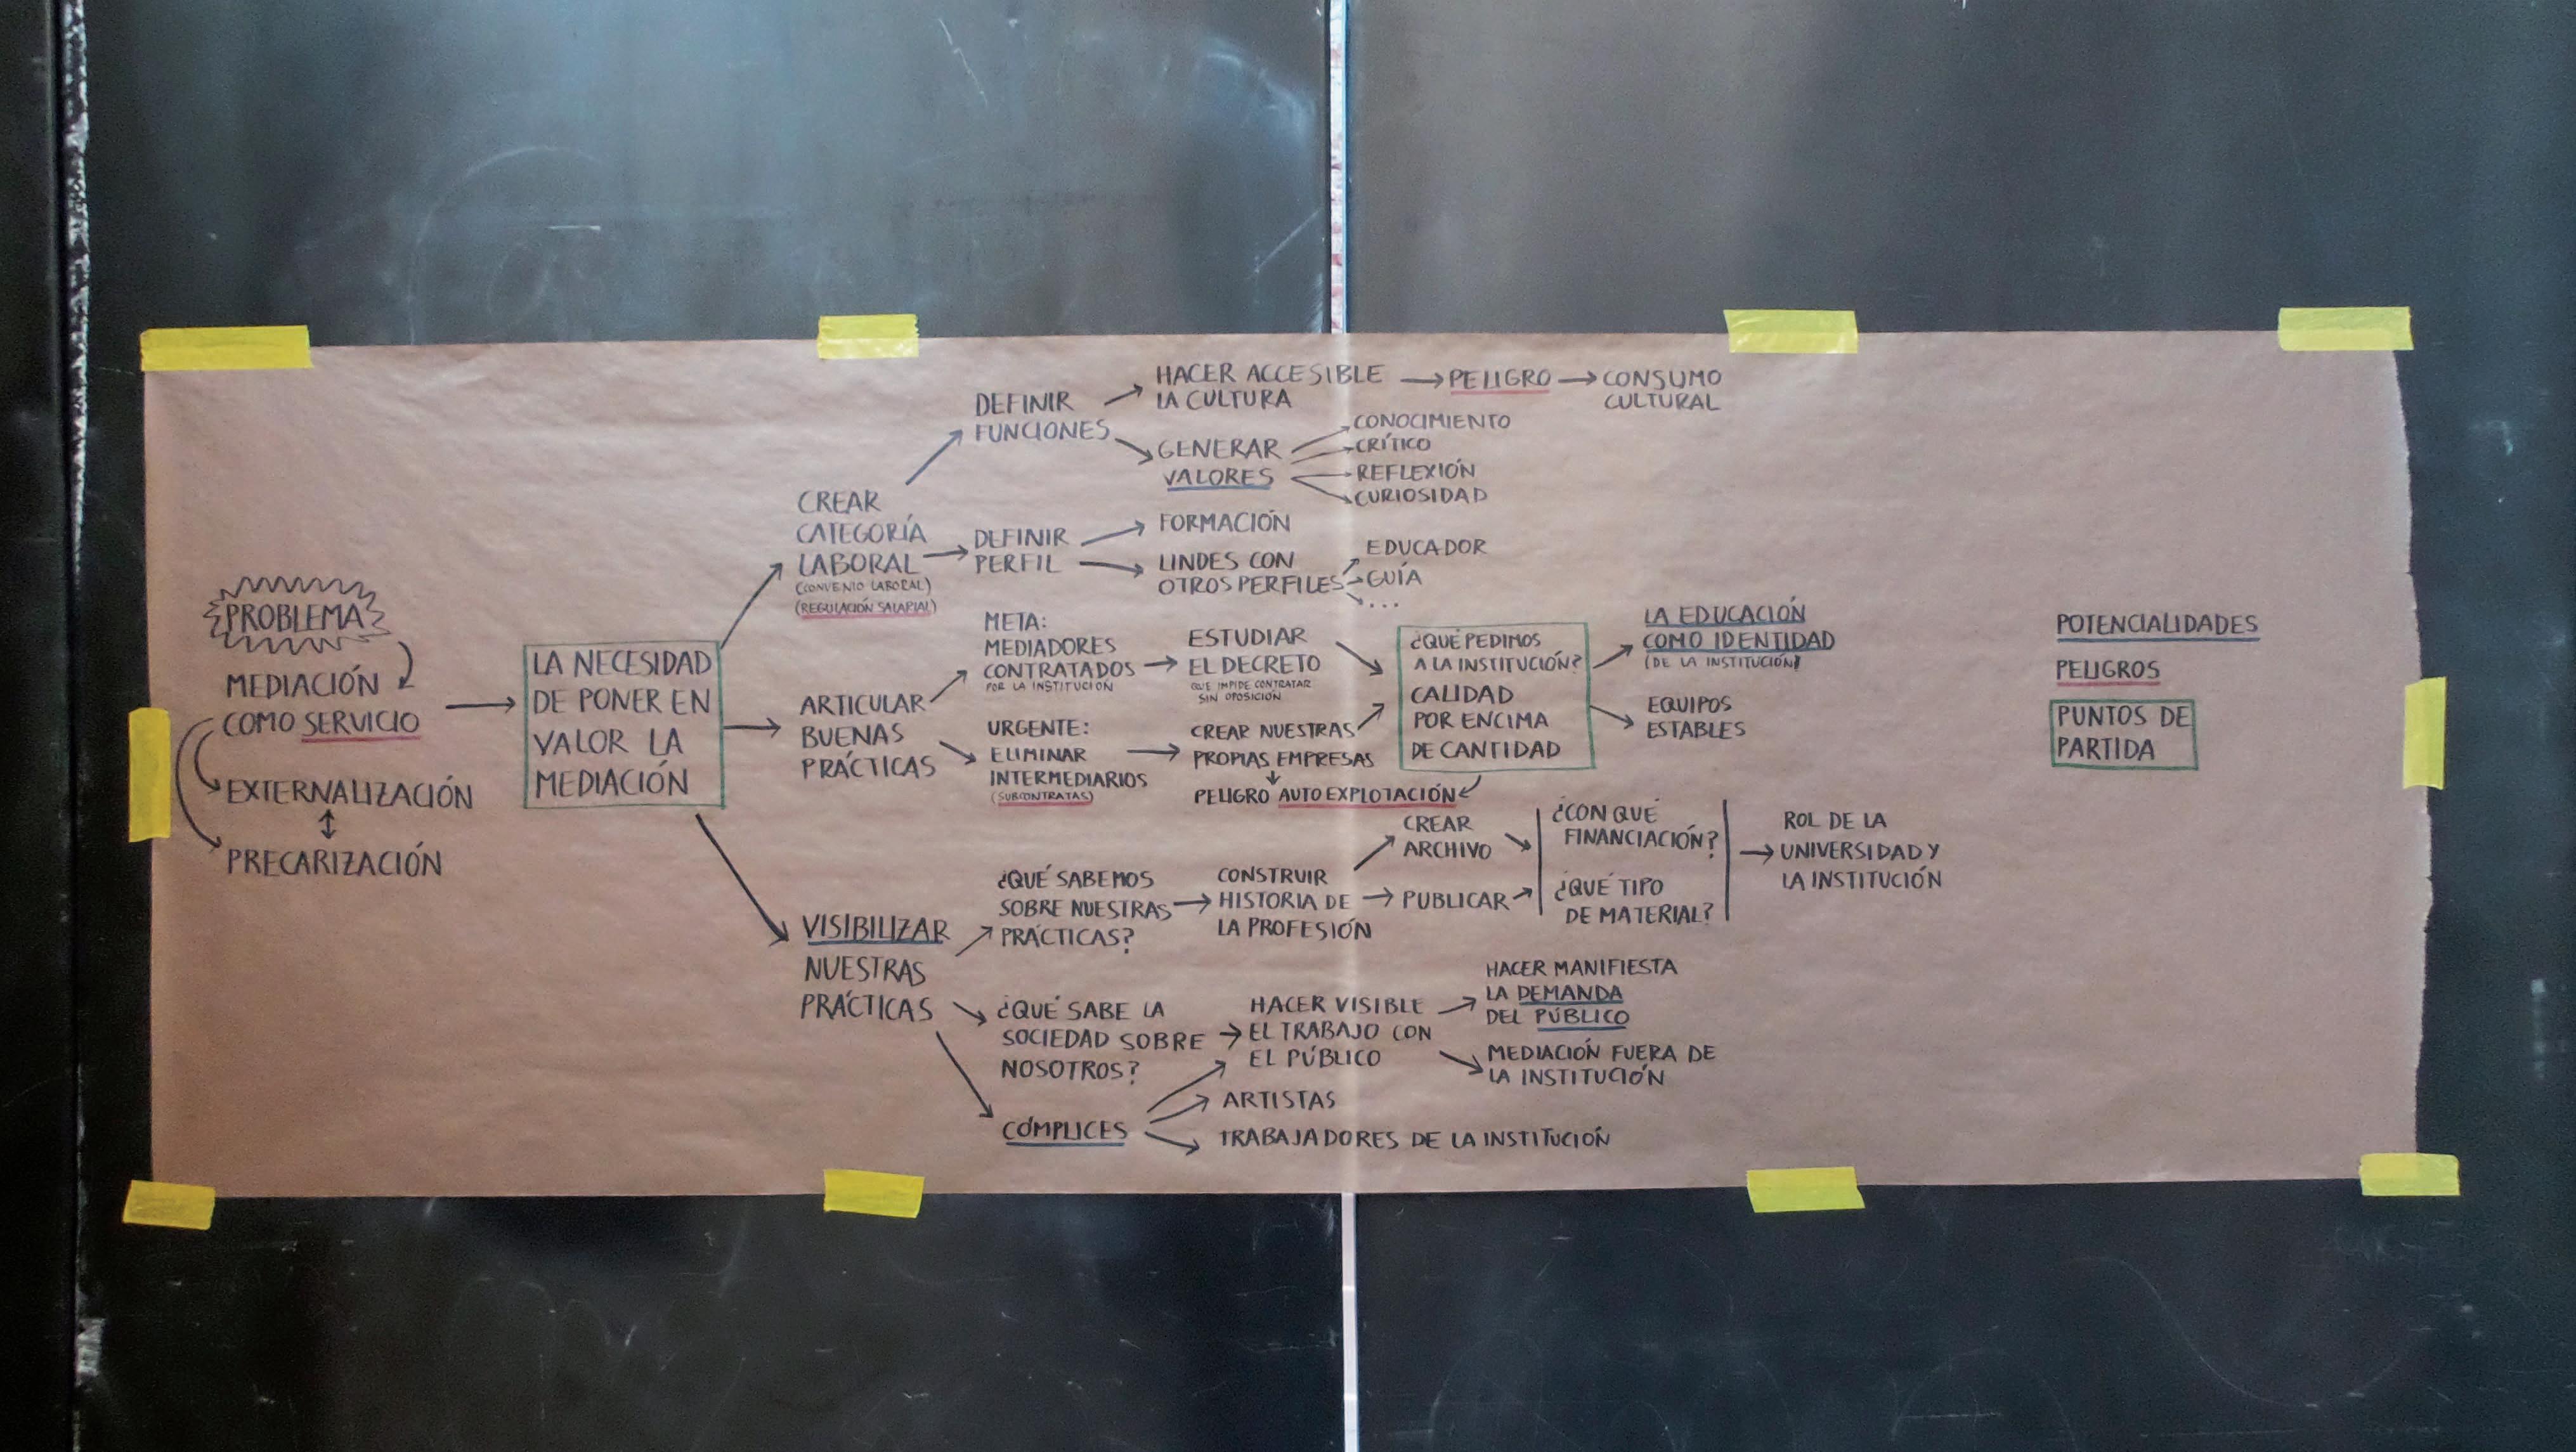 PROBLEMA
MEDIACIÓN
COMO SERVICIO
EXTERNALIZACIÓN
PRECARIZACIÓN
LA NECESIDAD
DE PONER EN
VALOR LA
MEDIACIÓN
CREAR
CATEGORÍA
LABORAL
(CONVENIO LABORAL)
(REGULACIÓN SALARIAL)
DEFINIR
FUNCIONES
HACER ACCESIBLE
LA CULTURA
PELIGRO
CONSUMO
CULTURAL
GENERAR
VALORES
CONOCIMIENTO
CRÍTICO
REFLEXIÓN
CURIOSIDAD
DEFINIR
PERFIL
FORMACIÓN
LINDES CON
OTROS PERFILES
EDUCADOR
GUÍA
...
ARTICULAR
BUENAS
PRÁCTICAS
META:
MEDIADORES
CONTRATADOS
POR LA INSTITUCIÓN
ESTUDIAR
EL DECRETO
QUE IMPIDE CONTRATAR
SIN OPOSICIÓN
URGENTE:
ELIMINAR
INTERMEDIARIOS
(SUBCONTRATAS)
CREAR NUESTRAS
PROPIAS EMPRESAS
PELIGRO AUTOEXPLOTACIÓN
¿QUÉ PEDIMOS
A LA INSTITUCIÓN?
CALIDAD
POR ENCIMA
DE CANTIDAD
LA EDUCACIÓN
COMO IDENTIDAD
(DE LA INSTITUCIÓN)
EQUIPOS
ESTABLES
VISIBILIZAR
NUESTRAS
PRÁCTICAS
¿QUÉ SABEMOS
SOBRE NUESTRAS
PRÁCTICAS?
CONSTRUIR
HISTORIA DE
LA PROFESIÓN
CREAR
ARCHIVO
PUBLICAR
¿CON QUÉ
FINANCIACIÓN?
¿QUÉ TIPO
DE MATERIAL?
ROL DE LA
UNIVERSIDAD Y
LA INSTITUCIÓN
¿QUÉ SABE LA
SOCIEDAD SOBRE
NOSOTROS?
HACER VISIBLE
EL TRABAJO CON
EL PÚBLICO
HACER MANIFIESTA
LA DEMANDA
DEL PÚBLICO
MEDIACIÓN FUERA DE
LA INSTITUCIÓN
CÓMPLICES
ARTISTAS
TRABAJADORES DE LA INSTITUCIÓN
POTENCIALIDADES
PELIGROS
PUNTOS DE
PARTIDA